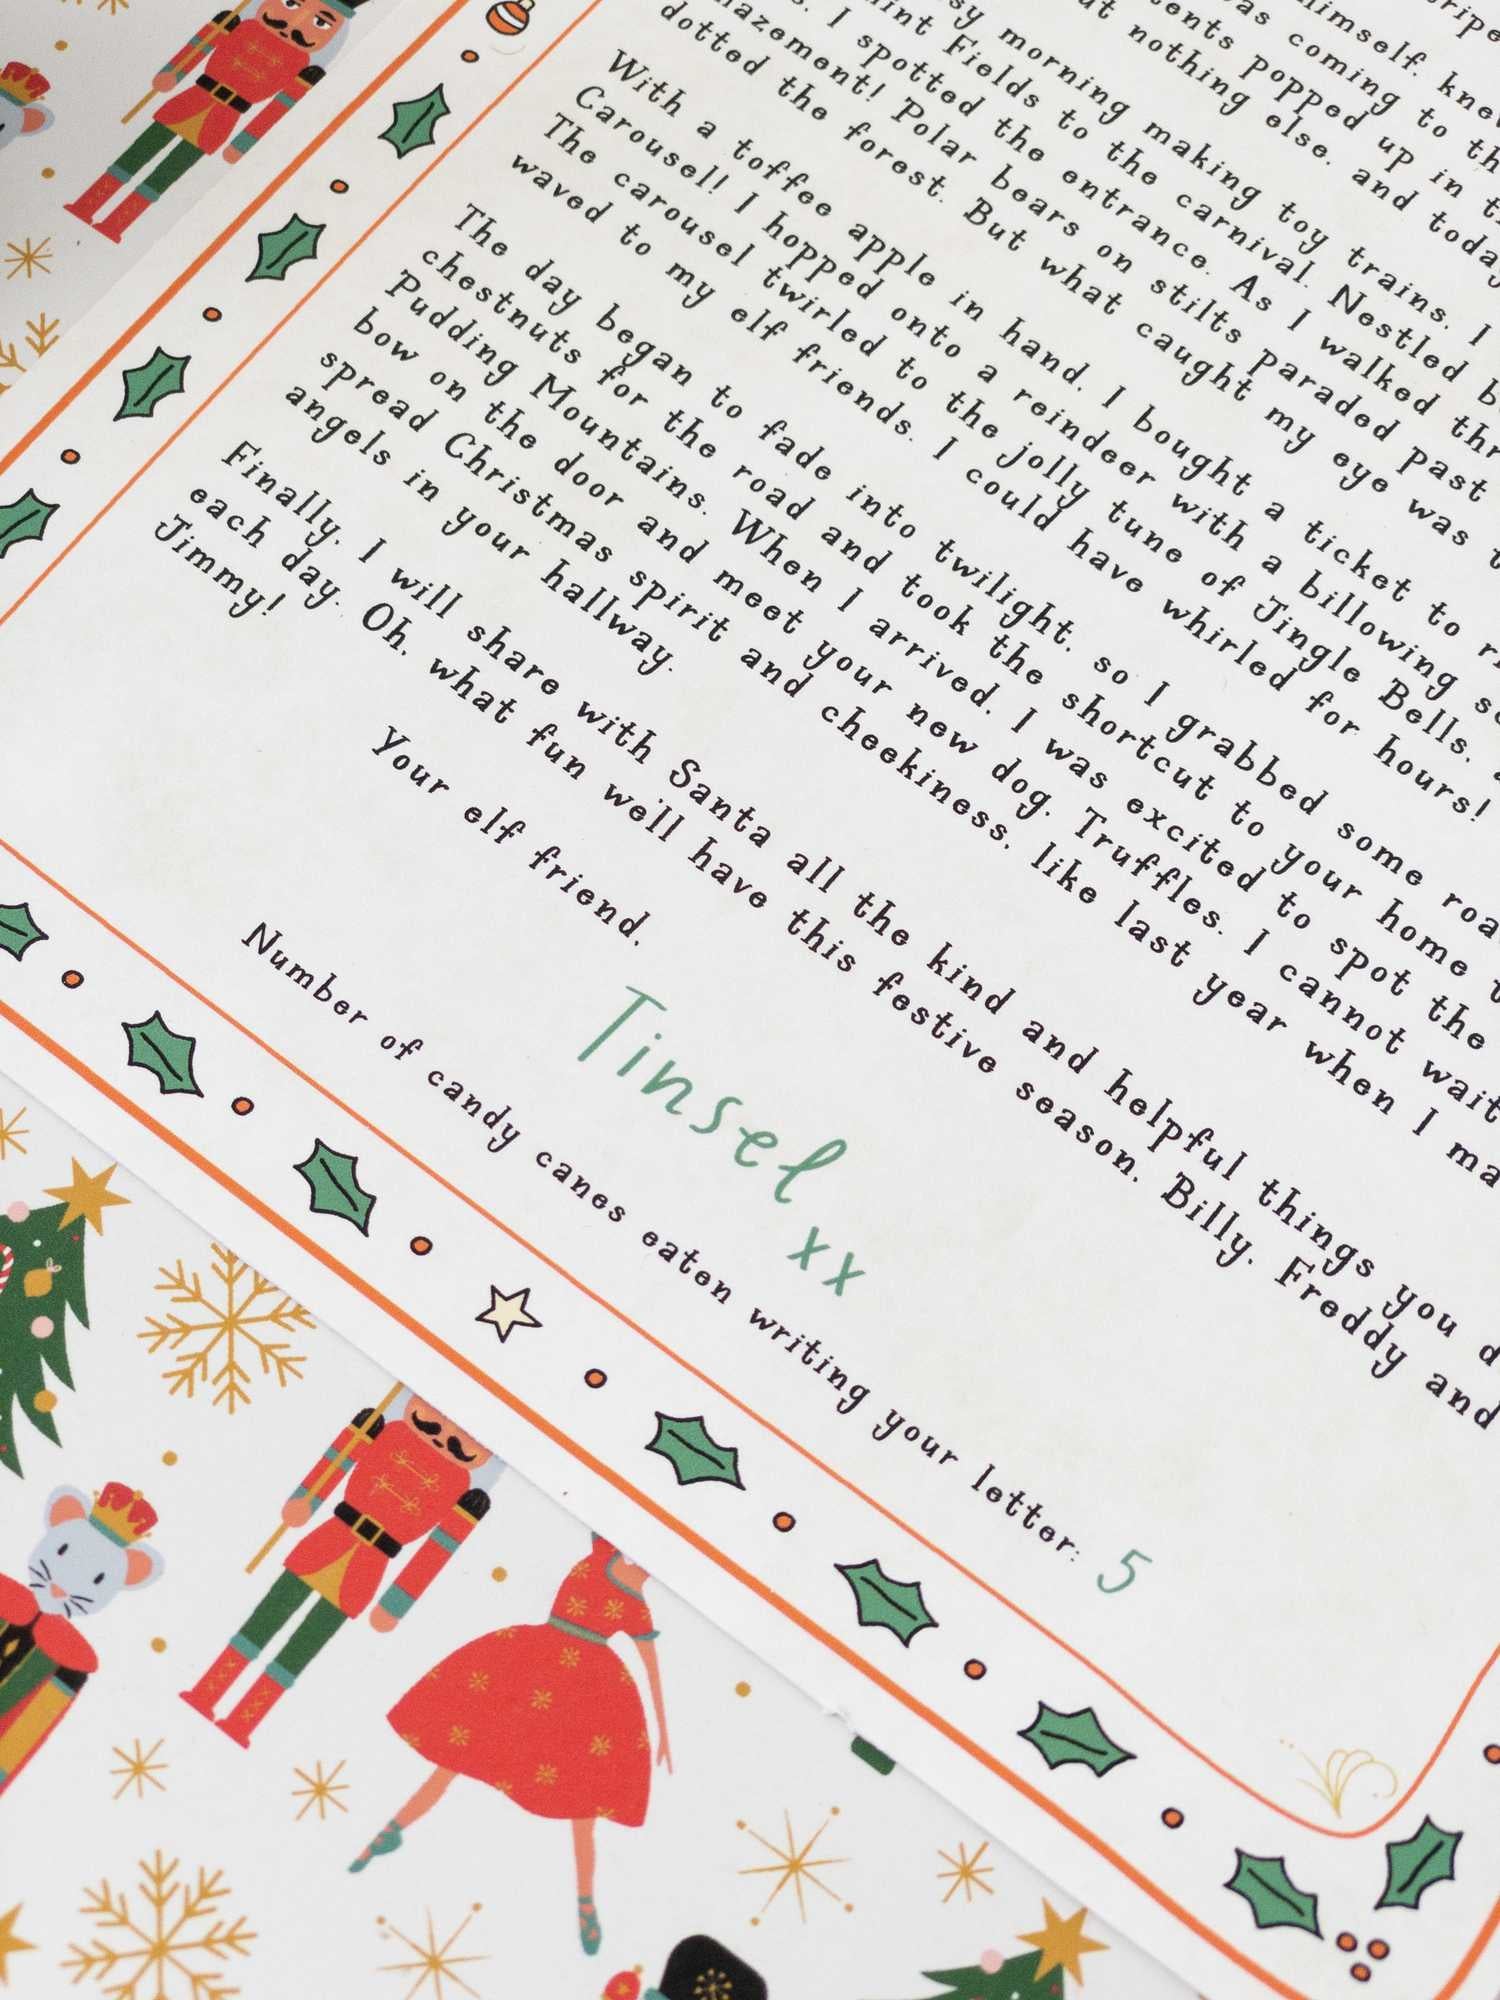 himself, knew
was coming to th
tents popped up in t
nothing else, and today
morning making toy trains. I
Fields to the carnival. Nestled b
I spotted the entrance. As I walked thr
azement! Polar bears on stilts paraded past
dotted the forest. But what caught my eye was t
With a toffee apple in hand, I bought a ticket to ri
Carousel! I hopped onto a reindeer with a billowing sc
The carousel twirled to the jolly tune of Jingle Bells, a
waved to my elf friends. I could have whirled for hours!
The day began to fade into twilight, so I grabbed some roa
chestnuts for the road and took the shortcut to your home
Pudding Mountains. When I arrived, I was excited to spot the
bow on the door and meet your new dog, Truffles. I cannot wait
spread Christmas spirit and cheekiness, like last year when I ma
angels in your hallway.
Finally, I will share with Santa all the kind and helpful things you d
each day. Oh, what fun we'll have this festive season, Billy, Freddy and
Jimmy!
Your elf friend,
Tinsel xx
Number of candy canes eaten writing your letter: 5